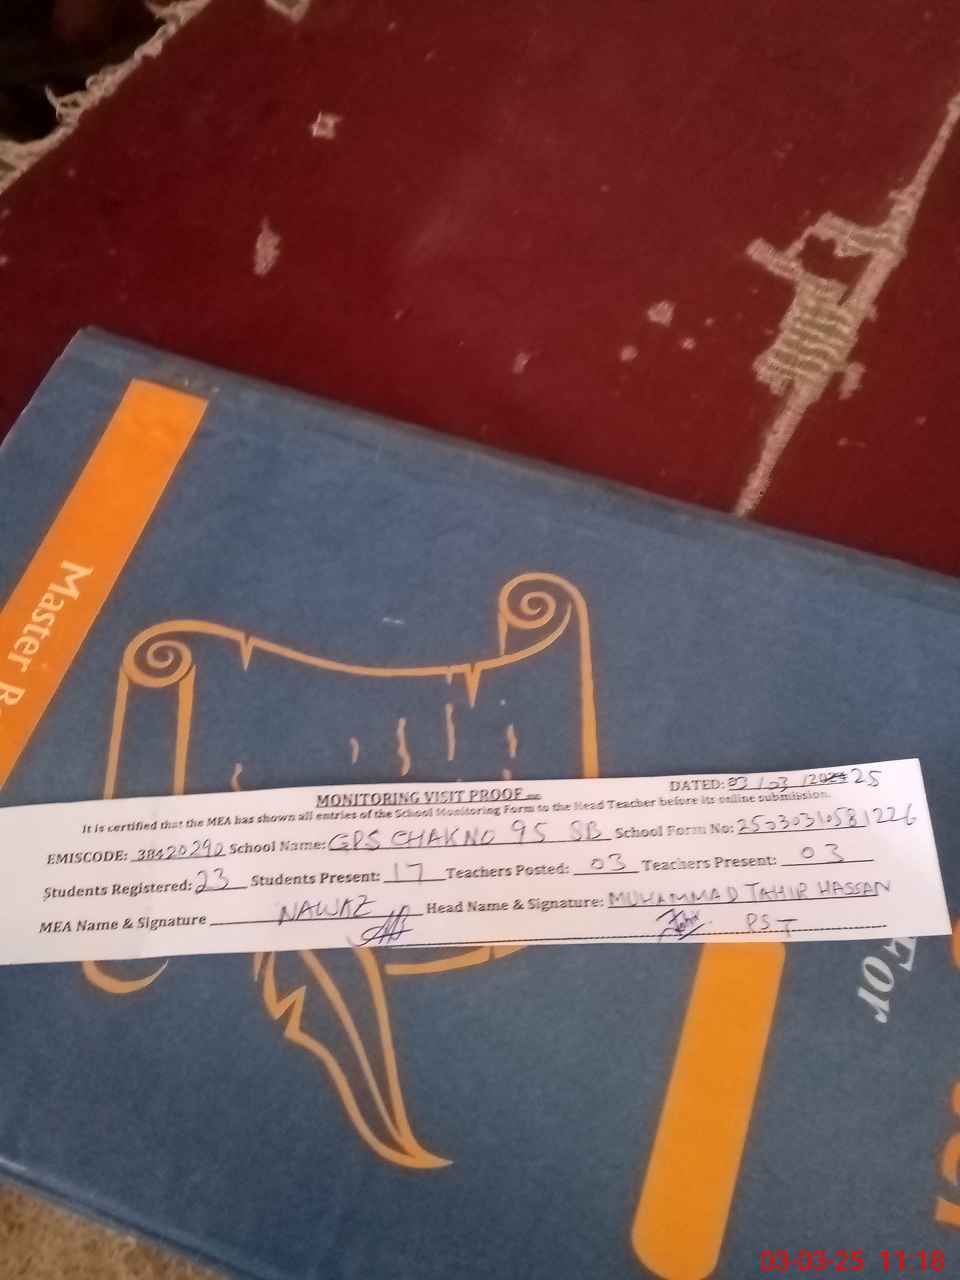 Master
MONITORING VISIT PROOF
DATED: 03/03/2024 25
It is certified that the MEA has shown all entries of the School Monitoring Form to the Head Teacher before its online submission.
EMISCODE: 38420290 School Name: GPS CHAK NO 95 SB School Form No: 2503031058 1226
Students Registered: 23 Students Present: 17 Teachers Posted: 03 Teachers Present: 03
MEA Name & Signature NAWAZ Head Name & Signature: MUHAMMAD TAHIR HASSAN
Tahir PST
For
03-03-25 11:18